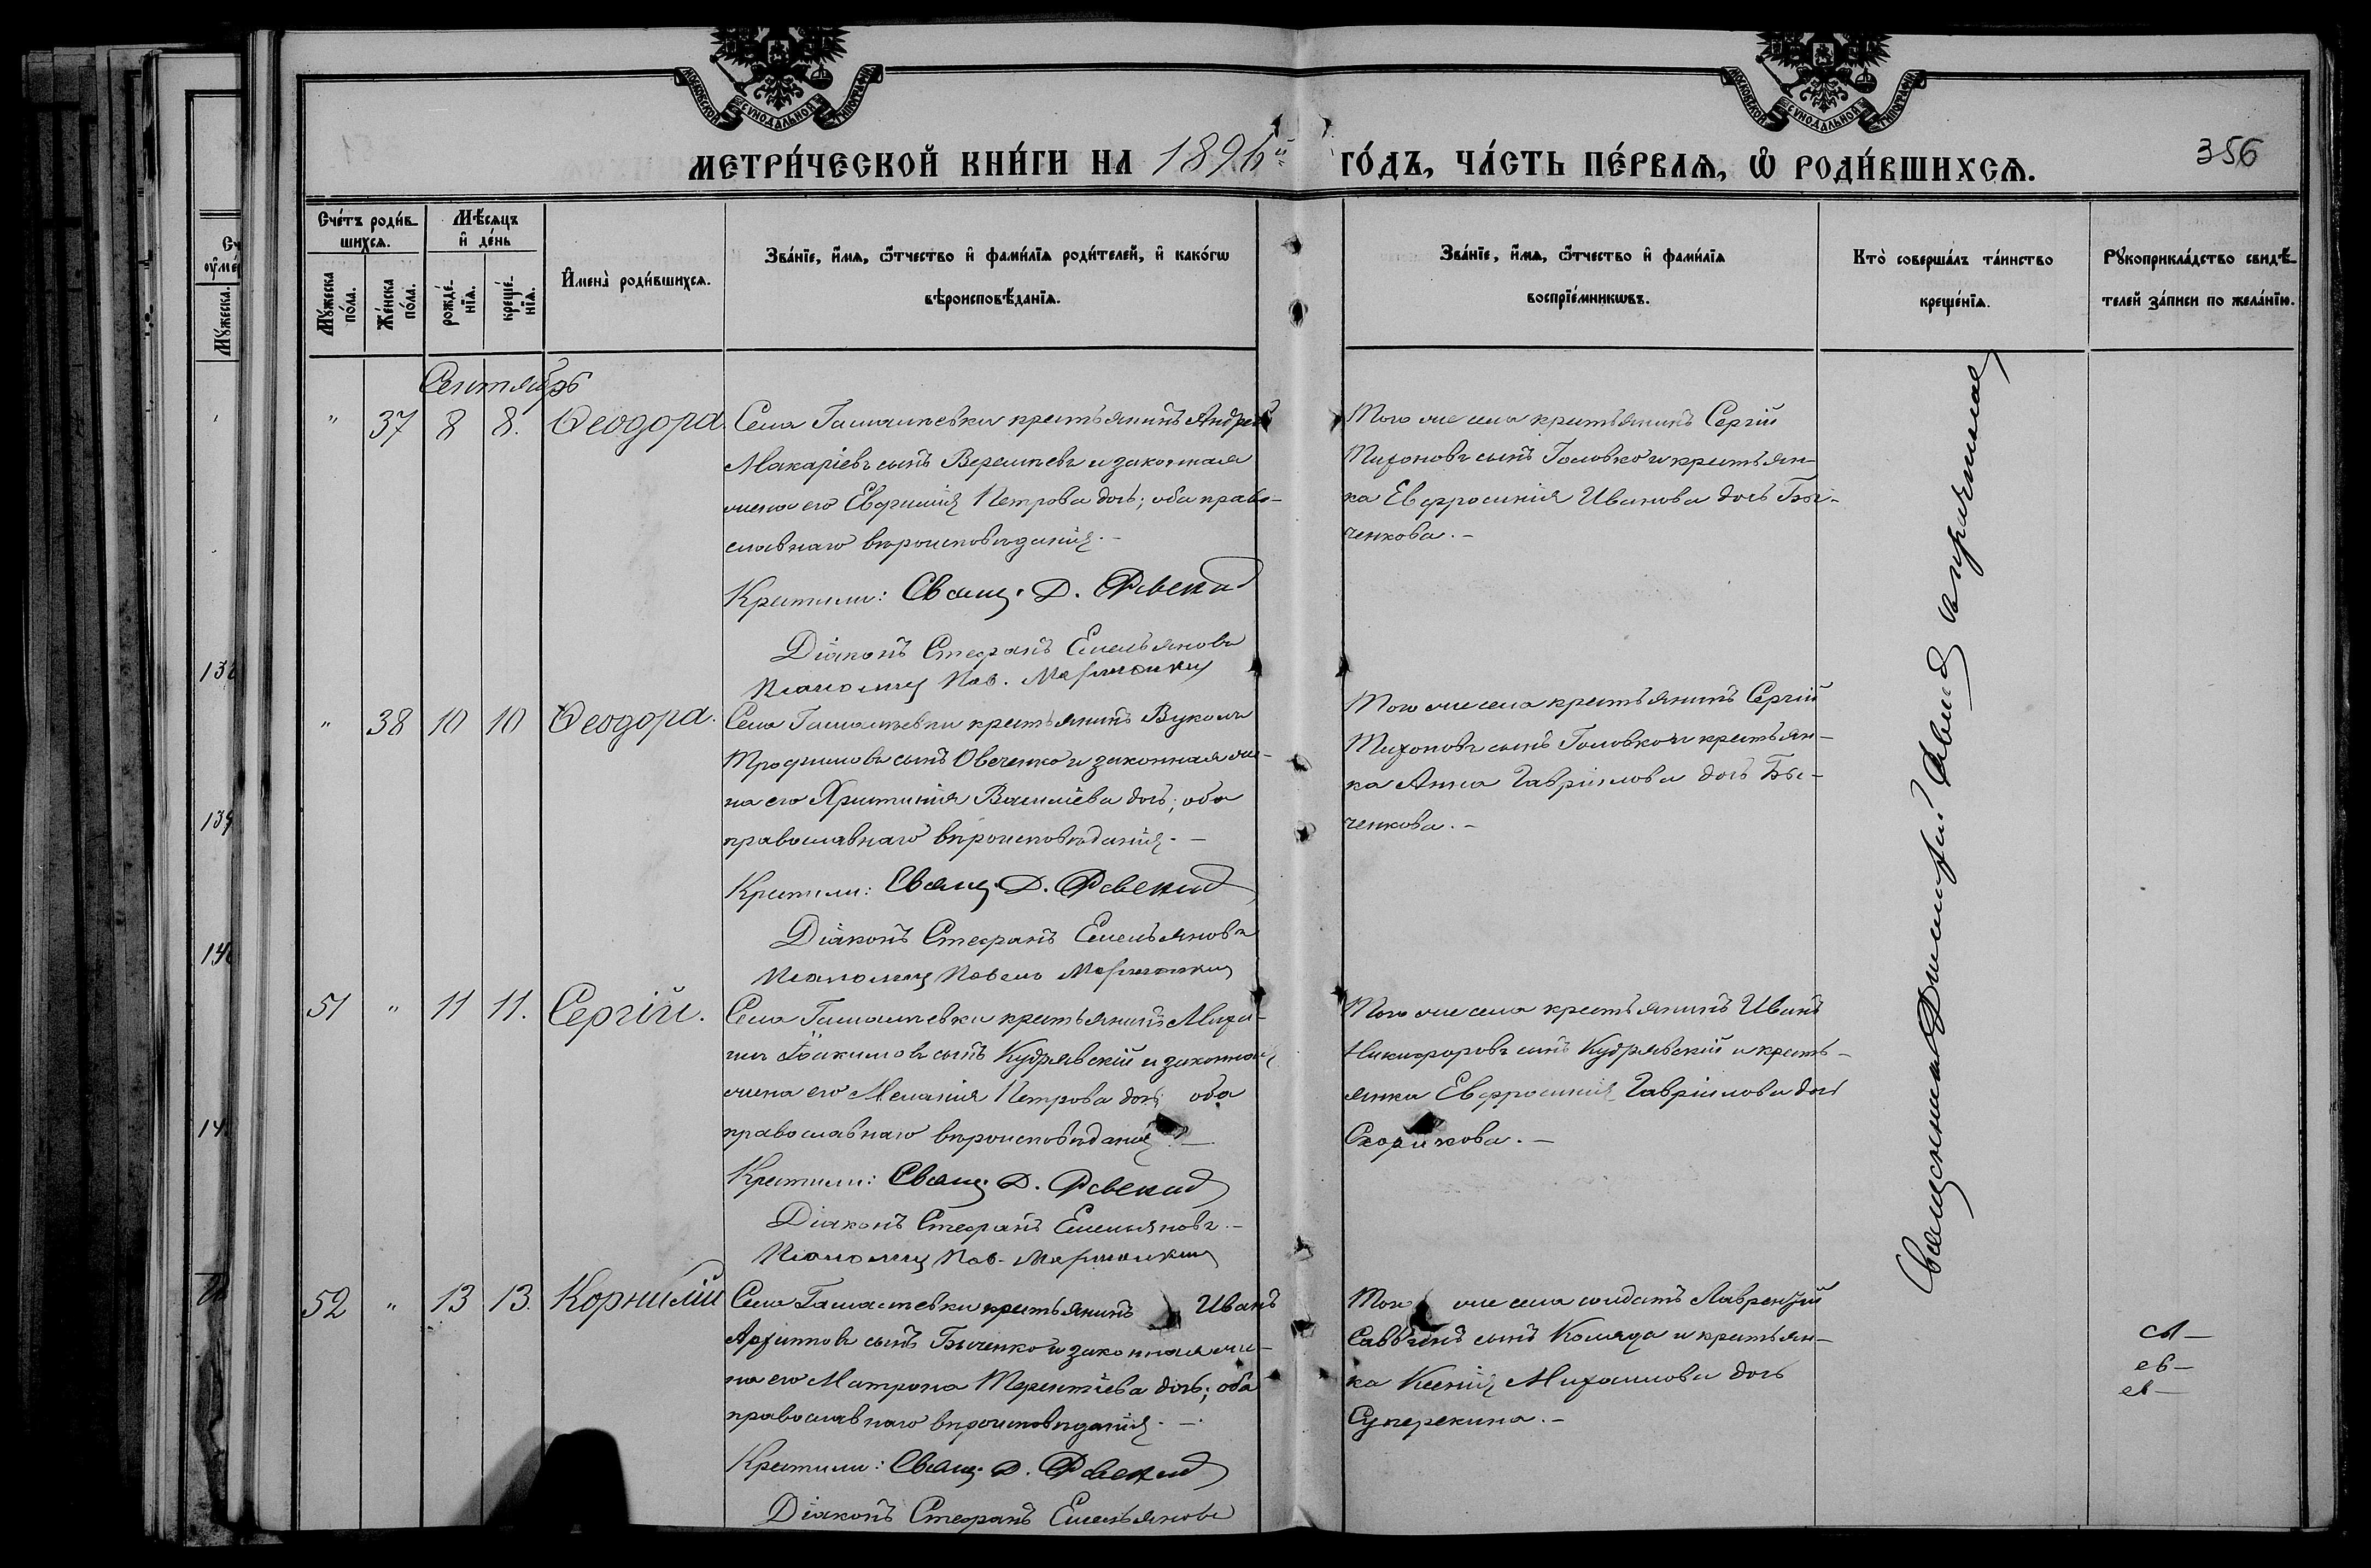 МОСКОВСКОЙ СУНОДАЛЬНОЙ ТИПОГРАФІИ
МОСКОВСКОЙ СУНОДАЛЬНОЙ ТИПОГРАФІИ
МЕТРИ́ЧЕСКОЙ КНИ́ГИ НА 1896й ГО́ДЪ, ЧА́СТЬ ПЕ́РВАѦ, Ѡ РОДИ́ВШИХСѦ.
356
Сче́тъ роди́вшихсѧ.
Мꙋ́жеска по́ла.
Же́нска по́ла.
Мѣ́сѧцъ и де́нь
рожде́нїѧ.
креще́нїѧ.
Имена̀ роди́вшихсѧ.
Зва́нїе, и́мѧ, ѻ́тчество и фами́лїѧ роди́телей, и како́гѡ
вѣроисповѣ́данїѧ.
Зва́нїе, и́мѧ, ѻ́тчество и фами́лїѧ
воспрїе́мникѡвъ.
Кто̀ соверша́лъ та́инство
креще́нїѧ.
Рꙋкоприкла́дство свидѣ́-
телей за́писи по жела́нїю.
Мꙋжеска.
Сентябрь
" 37 8 8. Ѳеодора.
Села крестьянинъ Андрей
Макаріевъ сынъ и законная
жена его Евфимія Петрова дочь; оба право-
славнаго вѣроисповѣданія. –
Крестили: Свящ. Д. Рѣвскій
Діаконъ Стефанъ Емельяновъ
Псаломщ. Пав.
Того же села крестьянинъ Сергій
Тихоновъ сынъ Головко и крестьян-
ка Евфросинія Иванова дочь Бы-
ченкова. –
" 38 10 10 Ѳеодора.
Села крестьянинъ Вуколъ
Трофимовъ сынъ Овченко и законная же-
на его Христинія Василіева дочь; оба
православнаго вѣроисповѣданія. –
Крестили: Свящ. Д. Рѣвскій
Діаконъ Стефанъ Емельяновъ
Псаломщ. Павелъ
Того же села крестьянинъ Сергій
Тихоновъ сынъ Головко и крестьян-
ка Анна Гавріилова дочь Бы-
ченкова. –
51 " 11 11. Сергій.
Села крестьянинъ Миха-
илъ Іоакимовъ сынъ Кудрявскій и законная
жена его Меланія Петрова дочь; оба
православнаго вѣроисповѣданія. –
Крестили: Свящ. Д. Рѣвскій
Діаконъ Стефанъ Емельяновъ. –
Псаломщ. Пав.
Того же села крестьянинъ Иванъ
Никифоровъ сынъ Кудрявскій и кресть-
янка Евфросинія Гавріилова дочь
Скорикова. –
52 " 13 13. Корнилій
Села крестьянинъ Иванъ
Архиповъ сынъ Быченко и законная же-
на его Матрона Терентіева дочь; оба
православнаго вѣроисповѣданія. –
Крестили: Свящ. Д. Рѣвскій
Діаконъ Стефанъ Емельяновъ
Того же села солдатъ Лаврентій
Саввинъ сынъ Коляда и крестьян-
ка Ксенія Михаилова дочь
Суперекина. –
Священникъ Димитрій